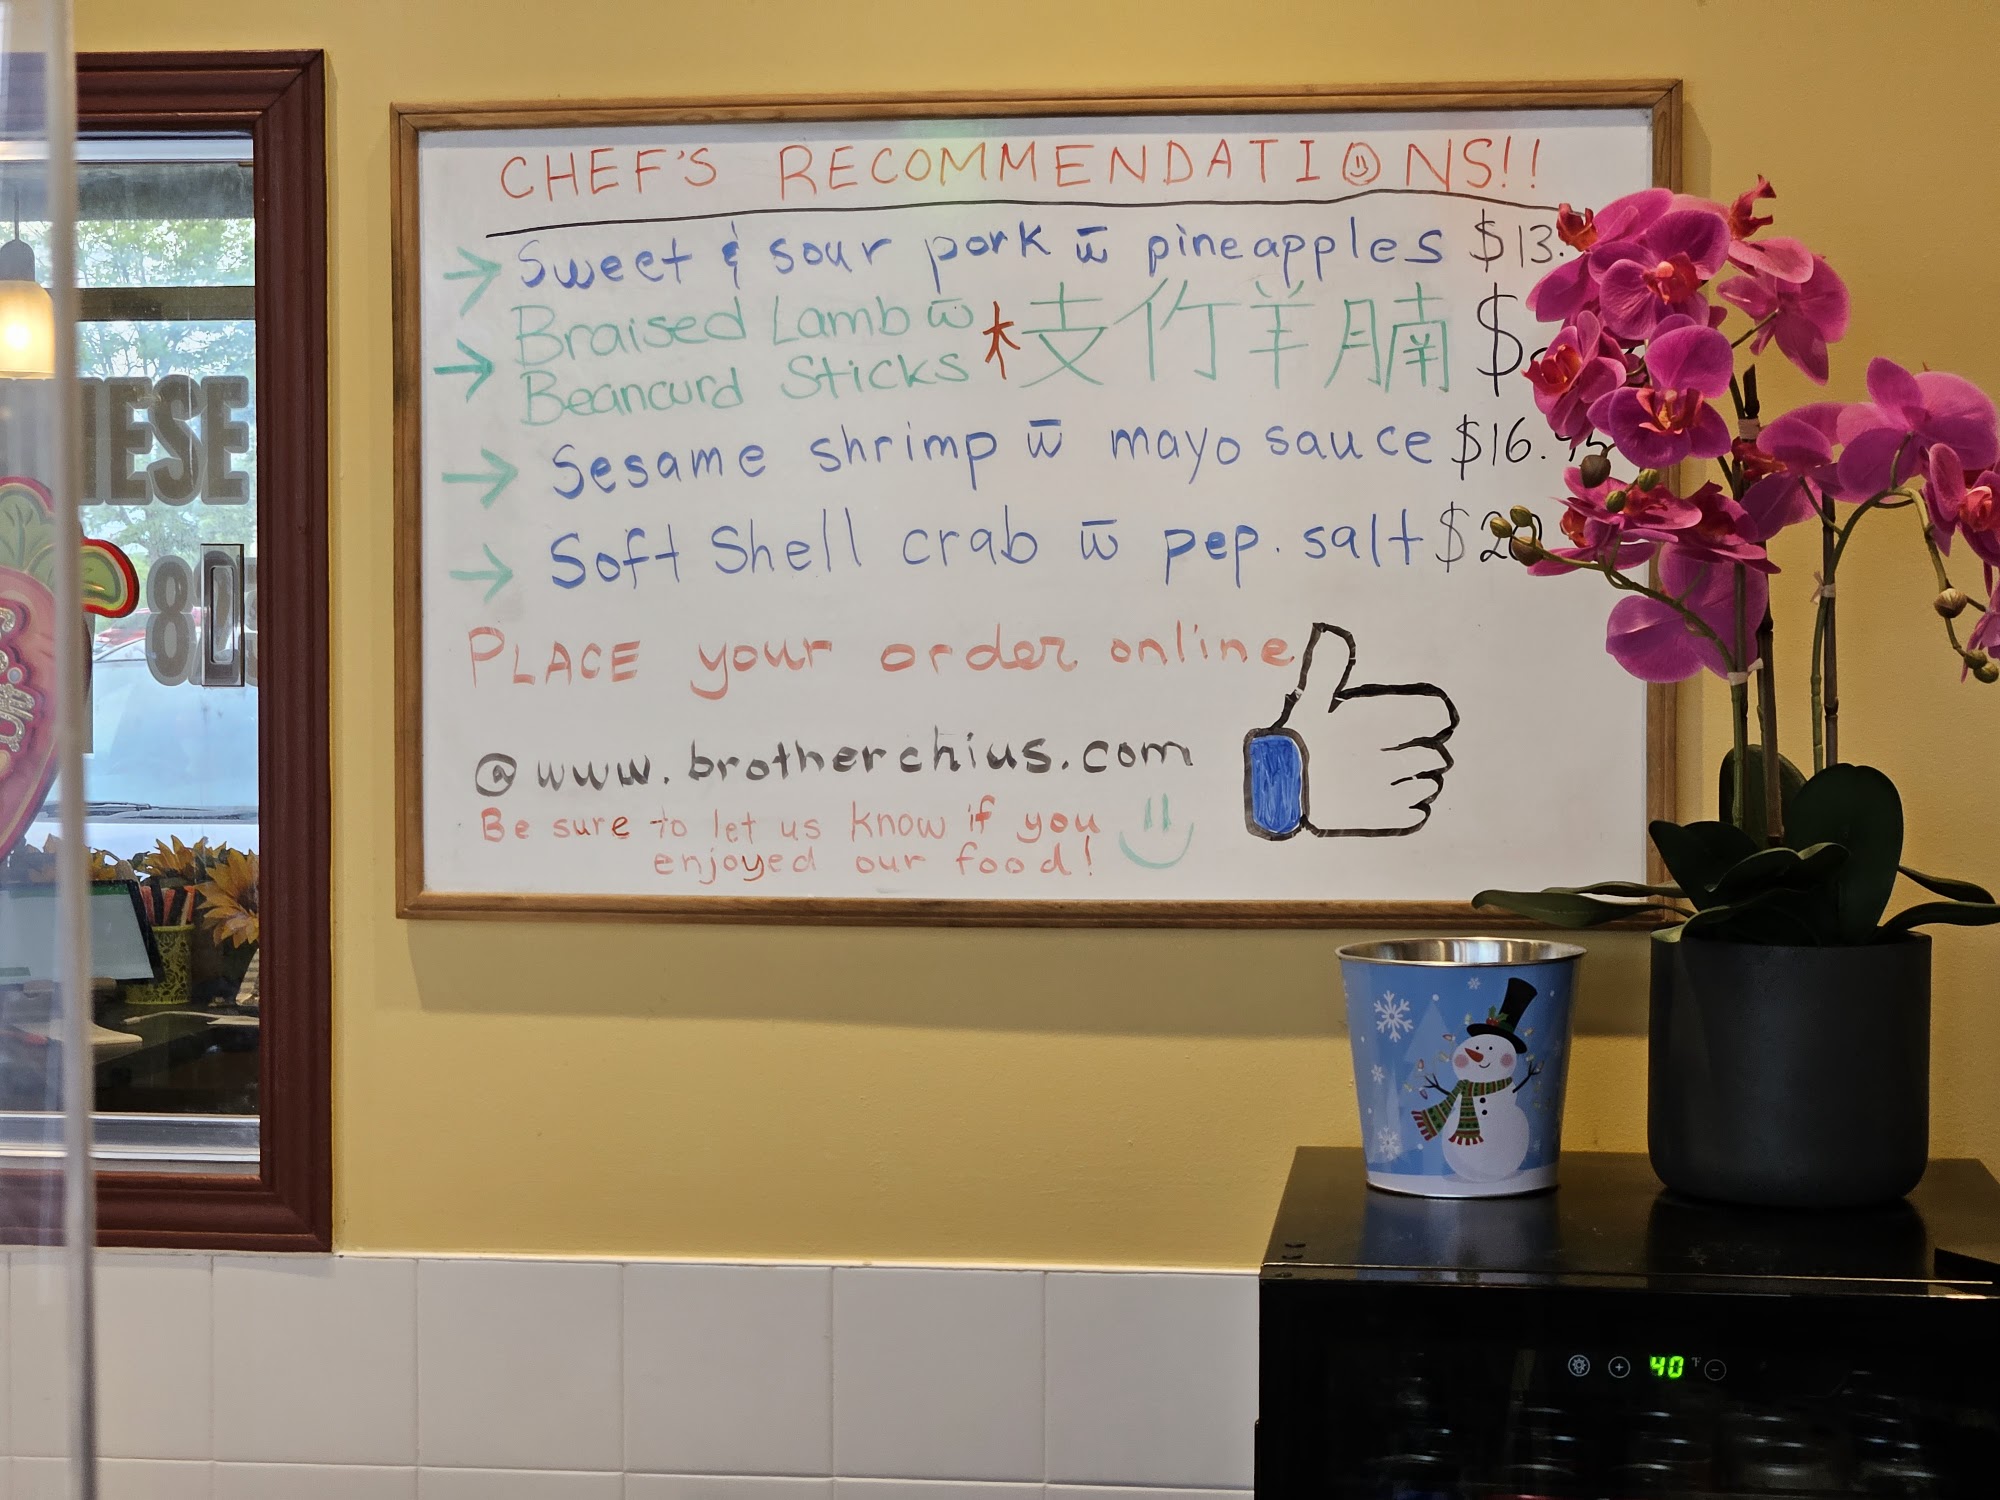 CHEF'S RECOMMENDATIONS!!
→ Sweet & sour pork w̅ pineapples $13.
→ Braised Lamb w̅
Beancurd Sticks 枝竹羊腩 $
→ Sesame shrimp w̅ mayo sauce $16.95
→ Soft Shell crab w̅ pep. salt $20
PLACE your order online
@ www.brotherchius.com
Be sure to let us know if you
enjoyed our food!
40 °F